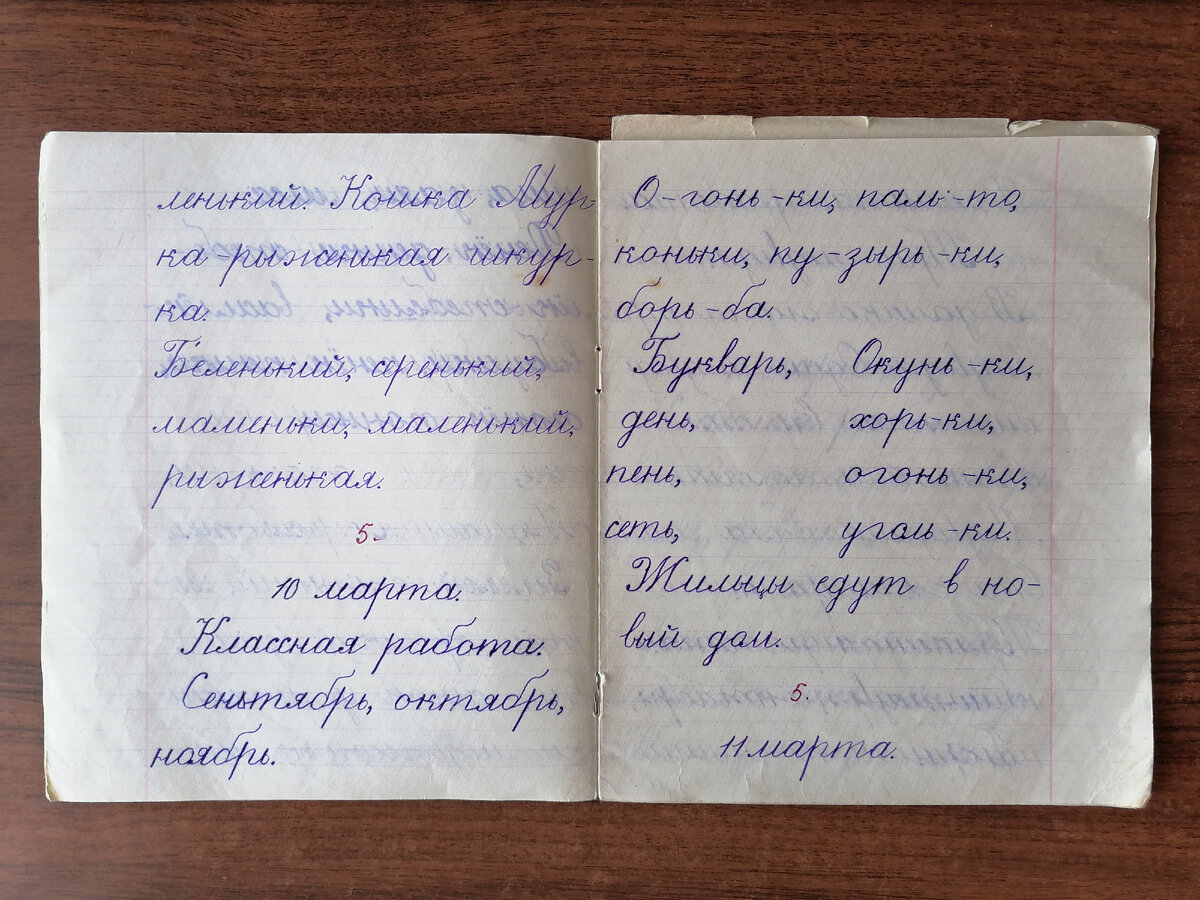 ленький. Кошка Мур-
ка рыженькая шкур-
ка.
Беленький, серенький,
маменьки, маленький,
рыженькая.
5.
10 марта.
Классная работа.
Сентябрь, октябрь,
ноябрь.
О-гонь-ки, паль-то,
коньки, пу-зырь-ки,
борь-ба.
Букварь, Окунь-ки,
день, хорь-ки,
пень, огонь-ки,
сеть, уголь-ки.
Жильцы едут в но-
вый дом.
5.
11 марта.